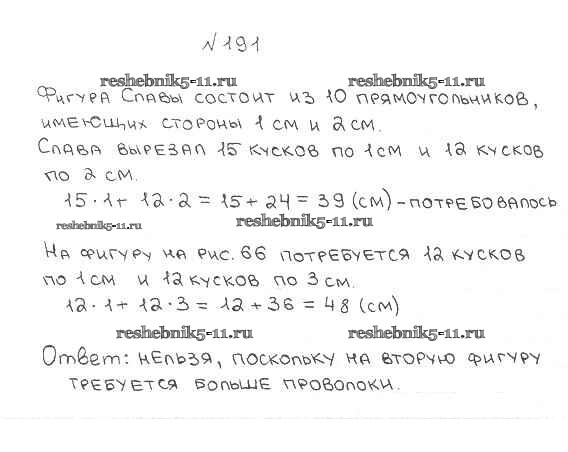 №191
reshebnik5-11.ru reshebnik5-11.ru
Фигура Славы состоит из 10 прямоугольников,
имеющих стороны 1 см и 2 см.
Слава вырезал 15 кусков по 1 см и 12 кусков
по 2 см.
15·1+ 12·2 = 15+ 24 = 39 (см) – потребовалось
reshebnik5-11.ru reshebnik5-11.ru
На фигуру на рис. 66 потребуется 12 кусков
по 1 см и 12 кусков по 3 см.
12·1+ 12·3 = 12 + 36 = 48 (см)
reshebnik5-11.ru reshebnik5-11.ru
Ответ: нельзя, поскольку на вторую фигуру
требуется больше проволоки.